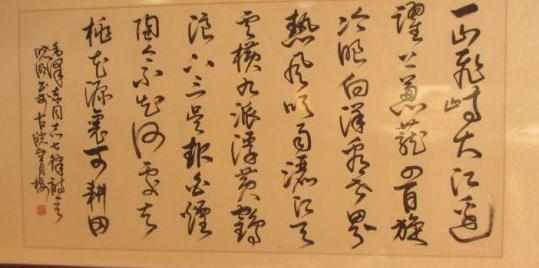 一山飛峙大江邊
躍上葱蘢四百旋
冷眼向洋看世界
熱風吹雨灑江天
雲橫九派浮黃鶴
浪下三吳起白煙
陶令不知何處去
桃花源裏可耕田
毛澤東同志七律詩一首